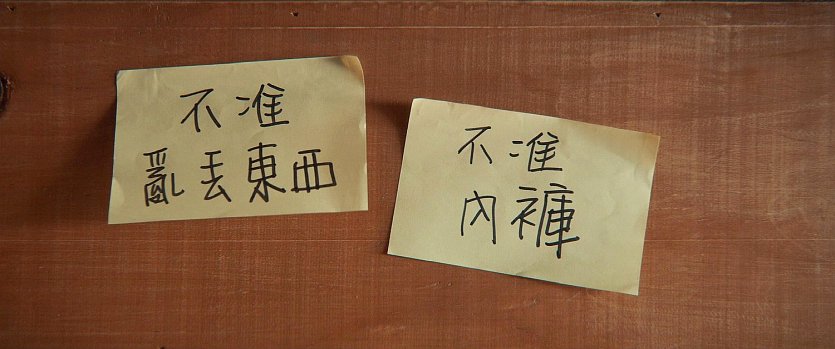 不准
亂丟東西
不准
內褲